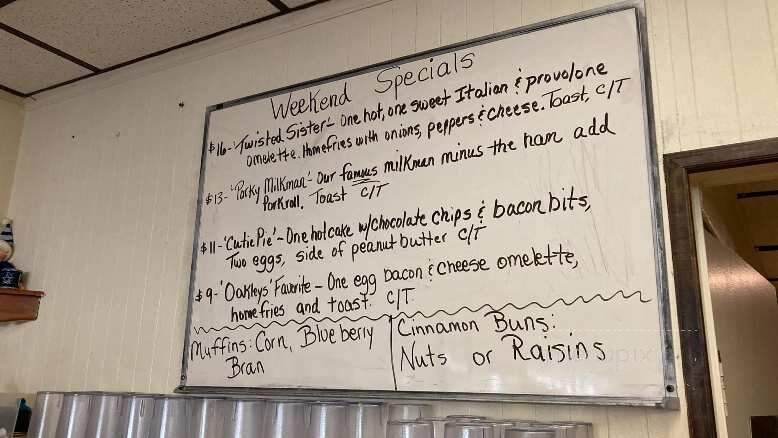 Weekend Specials
$16- 'Twisted Sister' - One hot, one sweet Italian & provolone
omelette. Homefries with onions, peppers & cheese. Toast, C/T
$13- 'Porky Milkman' - Our famous milkman minus the ham add
Porkroll. Toast C/T
$11- 'Cutie Pie' - One hotcake w/chocolate chips & bacon bits,
Two eggs, side of peanut butter C/T
$9- 'Oakleys' Favorite - One egg bacon & cheese omelette,
homefries and toast. C/T
Muffins: Corn, Blueberry
Bran
Cinnamon Buns:
Nuts or Raisins